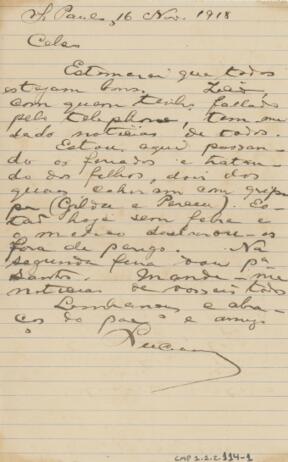 S. Paulo, 16 Nov. 1918
Celso
Estimarei que todos
estejam bons. Zizi,
com quem tenho fallado
pelo telephone, tem-me
dado noticias de todos.
Estou aqui passan-
do os feriados e tratan-
do dos filhos, dois dos
quaes cahiram com grip-
pe (Gilda e). Es-
tão hoje sem febre e
o medico declarou-os
fora de perigo. Na
segunda feira vou pª
Santos. Mande-me
noticias de vosseis todos
Lembranças e abra-
ços do pae e amigo
CMP 2.2.2.114-1